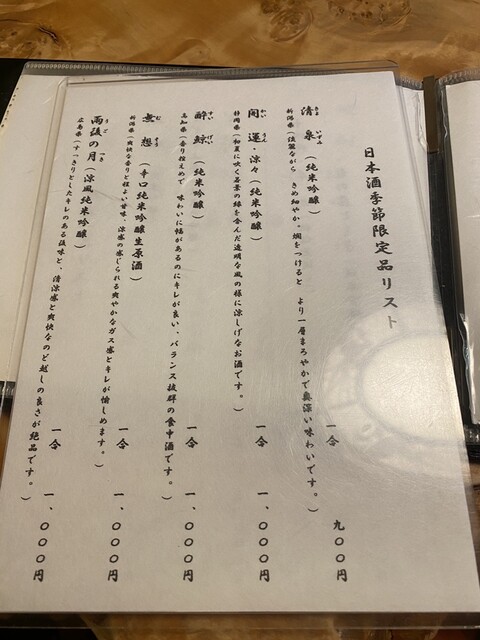 日本酒季節限定品リスト
清泉（純米吟醸）
きよ いずみ
新潟県（淡麗ながら きめ細やか。燗をつけると より一層まろやかで奥深い味わいです。） 一合 九〇〇円
開運・涼々（純米吟醸）
かい うん
静岡県（初夏に吹く若葉の緑を含んだ透明な風の様に涼しげなお酒です。） 一合 一、〇〇〇円
酔鯨（純米吟醸）
すい げい
高知県（香り控えめで 味わいに幅があるのにキレが良い、バランス抜群の食中酒です。） 一合 一、〇〇〇円
無想（辛口純米吟醸生原酒）
む そう
新潟県（爽快な香りと程よい甘味、涼感の感じられる爽やかなガス感とキレが愉しめます。） 一合 一、〇〇〇円
雨後の月（涼風純米吟醸）
うご つき
広島県（すっきりとしたキレのある後味と、清涼感と爽快なのど越しの良さが絶品です。） 一合 一、〇〇〇円